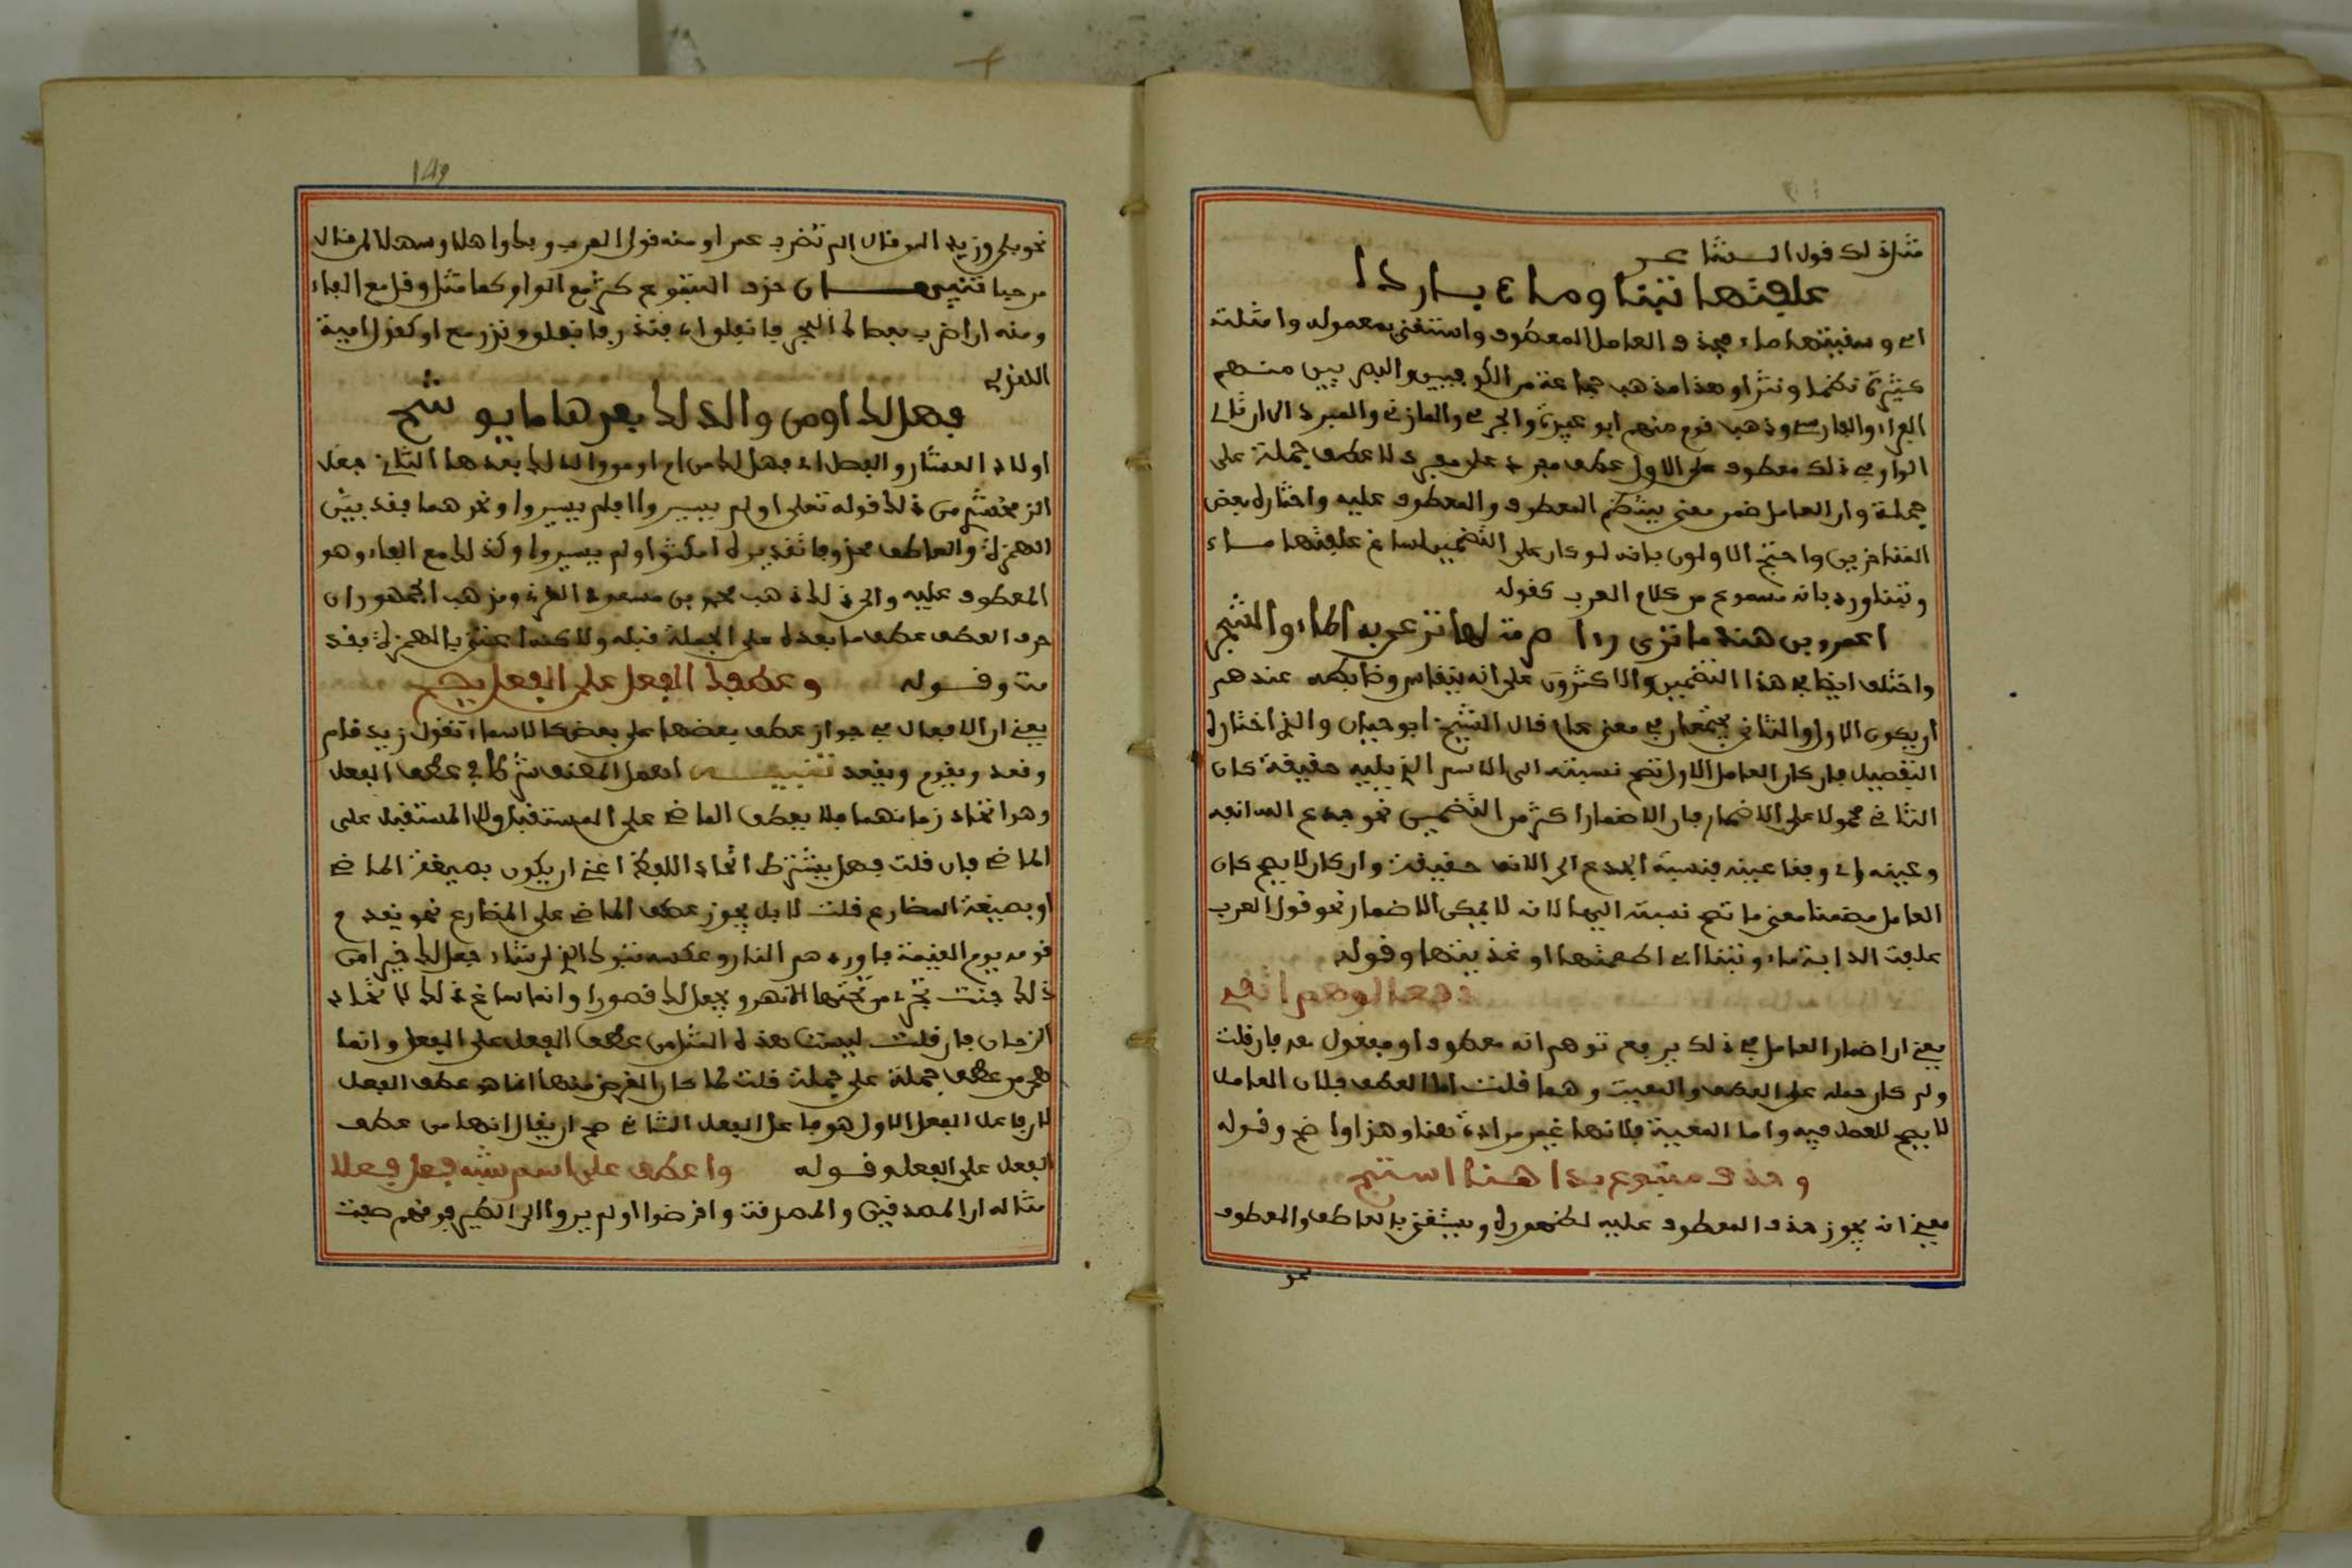 مثل ذلك قول الشاعر
علفتها تبنا وماء باردا
اى وسقيتها ماء فحذف العامل المعطوف واستغنى بمعموله وامثلته
كثيرة نظما ونثرا وهذا مذهب جماعة من الكوفيين والبصريين منهم
الفراء والفارسي وذهب قوم منهم ابو عبيدة والجرمي والمازني والمبرد الى ان تالي
الواو في ذلك معطوف على الاول عطف مفرد على مفرد لا عطف جملة على
جملة وان العامل ضمن معنى ينتظم المعطوف والمعطوف عليه واختاره بعض
المتاخرين واحتج الاولون بانه لو كان على التضمين لساغ علفتها ماء
وتبنا ورد بانه مسموع من كلام العرب كقوله
اعمرو بن هند ما ترى راى صرمة لها ترعى به الماء والشجر
واختلف ايضا في هذا التضمين والاكثرون على انه ينقاس وضابطه عندهم
ان يكون الاول والثاني يجتمعان في معنى عام قال الشيخ ابو حيان والذي اختاره
التفصيل فان كان العامل الاول تصح نسبته الى الاسم الذي يليه حقيقة كان
الثاني محمولا على الاضمار فان الاضمار اكثر من التضمين نحو جدع الله انفه
وعينيه اي وفقا عينيه فنسبة الجدع الى الانف حقيقة وان كان لا يصح كان
العامل مضمنا معنى ما تصح نسبته اليه لانه لا يمكن الاضمار نحو قول العرب
علفت الدابة ماء وتبنا اى اطعمتها او غذيتها وقوله
دفعا لوهم اتقي
يعني ان اضمار العامل في ذلك يرفع توهم انه معطوف او مفعول معه فان قلت
ولم كان حمله على العطف والمعية وهما قلت اما العطف فلان العامل
لا يصح للعمل فيه واما المعية فلانها غير مرادة هنا وهذا واضح وقوله
وحذف متبوع بدا هنا استبح
يعني انه يجوز حذف المعطوف عليه لظهوره ويستغنى بالعاطف والمعطوف
نحو
149
نحو بلى وزيدا لمن قال الم تضرب عمرا ومنه قول العرب وبك واهلا وسهلا لمن قال
مرحبا تنبيهان حذف المتبوع كثر مع الواو كما مثل وقل مع الفاء
ومنه ان اضرب بعصاك البحر فانفلق اى فضرب فانفلق وندر مع او كقول امية
الهذلي
فهل لك او من والد لك قبلنا يوشح
اولاد العشار ويفصل اى فهل لك من اخ او من والد لك
الزمخشري من ذلك قوله تعلى او لم يسيروا افلم يسيروا ونحوهما فقدر بين
الهمزة والعاطف محذوفا تقديره امكثوا ولم يسيروا وكذلك مع الفاء وهو
المعطوف عليه والى ذلك ذهب محمد بن مسعود الغزني ومذهب الجمهور ان
حرف العطف عطف ما بعده على الجملة قبله ولاكن اعتني بالهمزة فقد
مت وقوله وعطفك الفعل على الفعل يصح
يعني ان الافعال في جواز عطف بعضها على بعض كالاسماء تقول زيد قام
وقعد ويقوم ويقعد تنبيه اهمل المصنف شرطا في عطف الفعل
وهو اتحاد زمانهما فلا يعطف الماضي على المستقبل ولا المستقبل على
الماضي فان قلت فهل يشترط اتحاد اللفظ اعني ان يكون بصيغة الماضي
او بصيغة المضارع قلت لا بل يجوز عطف الماضي على المضارع نحو يقدم
قومه يوم القيمة فاوردهم النار وعكسه تبرك الذي ان شاء جعل لك خيرا من
ذلك جنت تجري من تحتها الانهر ويجعل لك قصورا وانما ساغ ذلك لاتحاد
الزمان فان قلت ليست هذه المثل من عطف الفعل على الفعل وانما
هي من عطف جملة على جملة قلت لما كان الغرض منها انما هو عطف الفعل
لان فاعل الفعل الاول هو فاعل الفعل الثاني صح ان يقال انها من عطف
الفعل على الفعل وقوله واعطف على اسم شبه فعل فعلا
مثاله ان المصدقين والمصدقت واقرضوا او لم يروا الى الطير فوقهم صفت